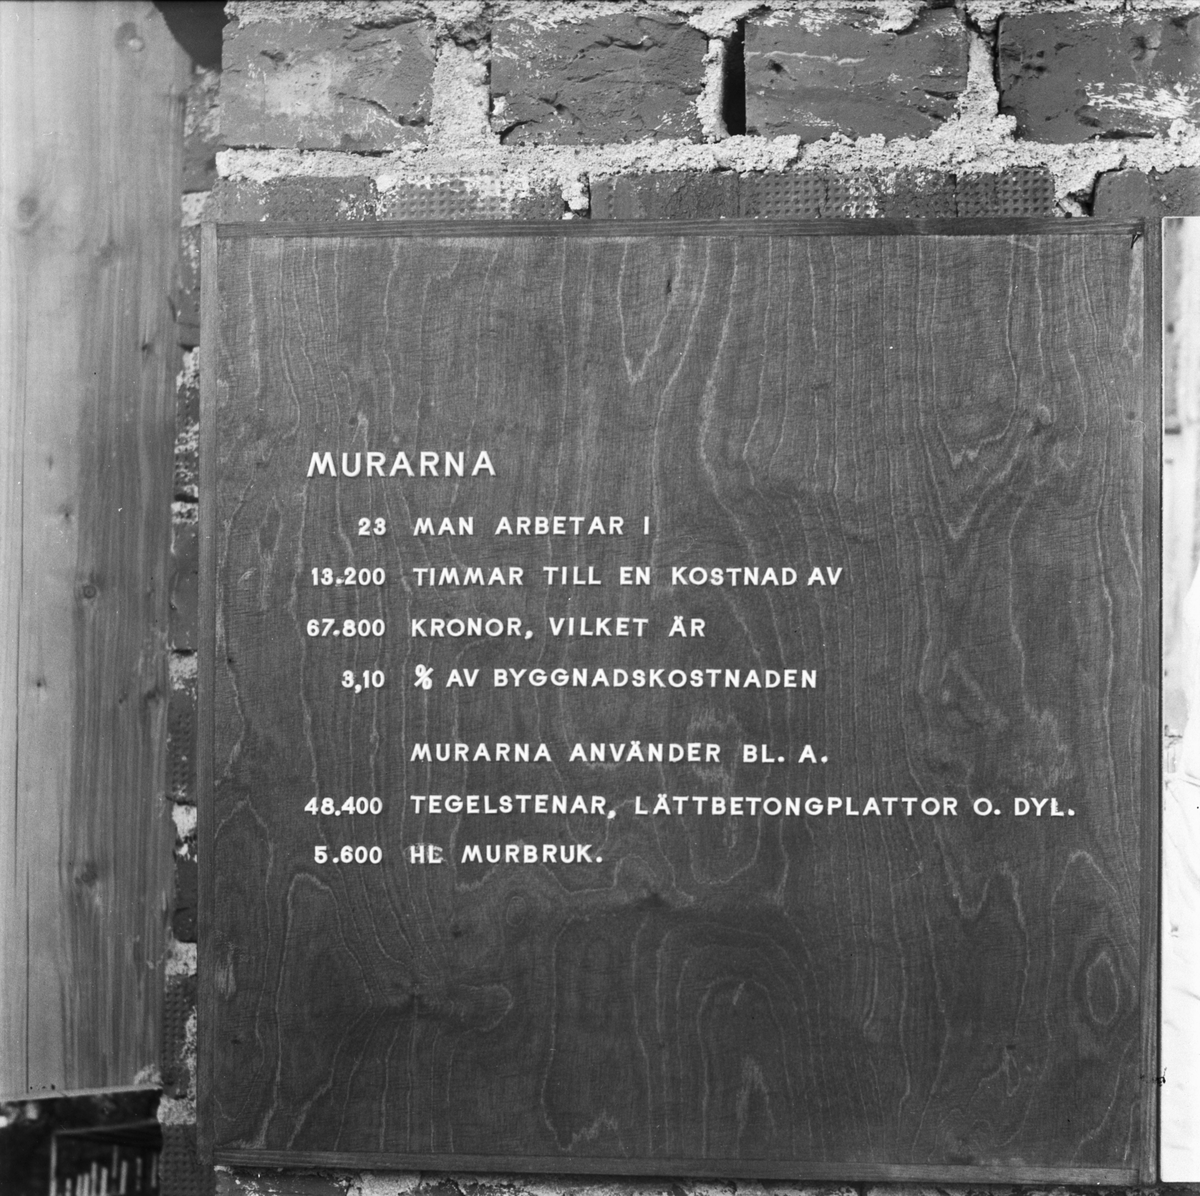 MURARNA
23 MAN ARBETAR I
13.200 TIMMAR TILL EN KOSTNAD AV
67.800 KRONOR, VILKET ÄR
3,10 % AV BYGGNADSKOSTNADEN
MURARNA ANVÄNDER BL. A.
48.400 TEGELSTENAR, LÄTTBETONGPLATTOR O. DYL.
5.600 HE MURBRUK.